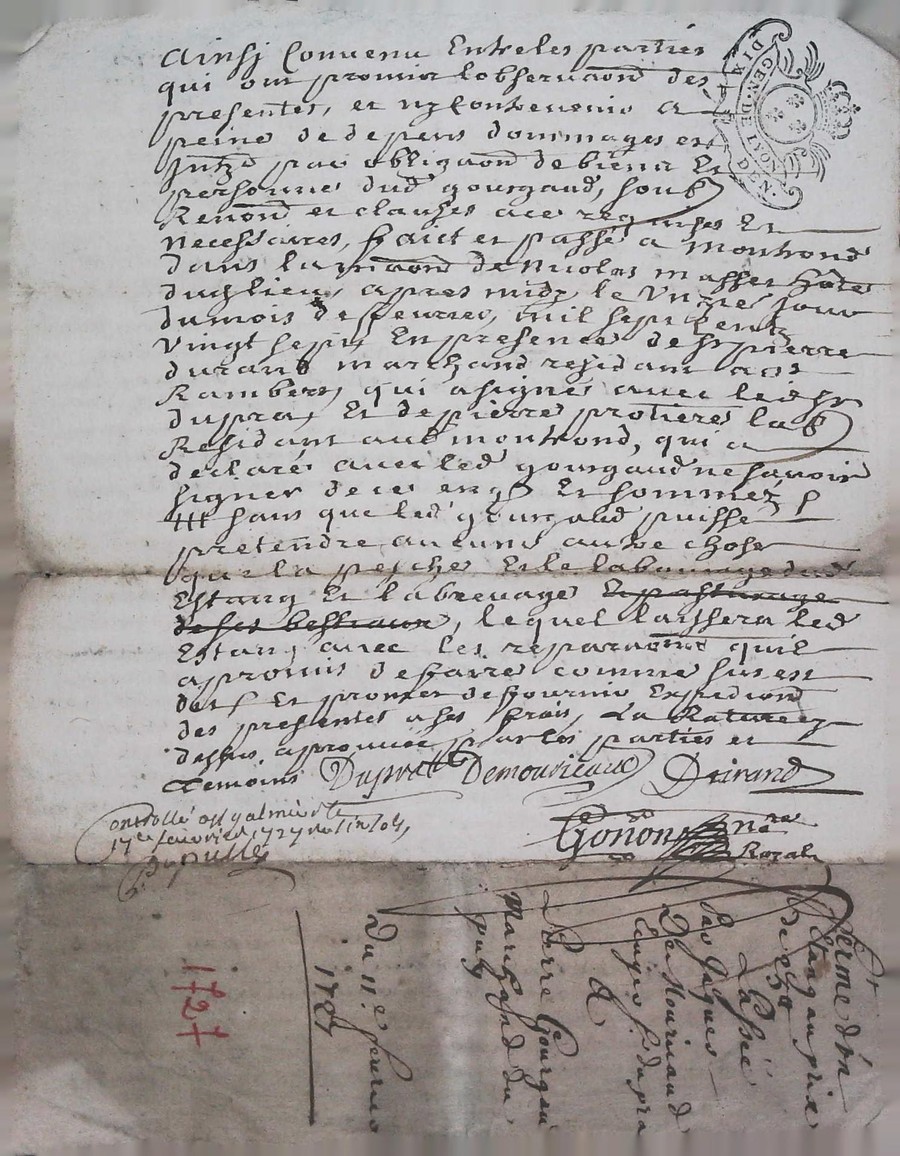 Ainsj Convenu Entreles parties
qui ont promis lobservaon des
presentes, et nycontrevenir a
peine de depens dommages et
Intz par obligaon debiens Et
personne dud gourgaud, soub
Renon et clauses ace requises Et
necessaires, faict et passé a montrond
dans lamaon deNicolas masser hôte
dudlieu, apres midy le Unze jour
dumois defevrier, mil sept Cents
vingt sept En presence de sr pierre
durand marchand residant a st
Rambert, qui asigné avec ledsr
duprat, Et depierre protiere lab
Residant aud montrond, qui a
declaré avec led gourgaud ne savoir
signer dece enq Et sommez
sans que led gourgaud puisse
pretendre aucune autre chose
que la pesche Et le labourage dud
Estang Et labrevage Et pasturage
de ses bestiaux, lequel laissera led
Estang avec les reparaons quil
apromis defaire comme sus est
dit Et promet defournir Expedion
des presentes ases frais, La Rature cy
dessus approuvée par les parties et
temoins Duprat Demouriaux Durand
Controllé a st galmier le
17e feuvrier 1727
Gonon nre
Royal
Ferme d'un
Etang au prix
de
Passée
par Jaques
De Mouriaud
dupra
A
Pierre Gourgau
Marchand du
puy
Du 11e fevrier
1727
1727